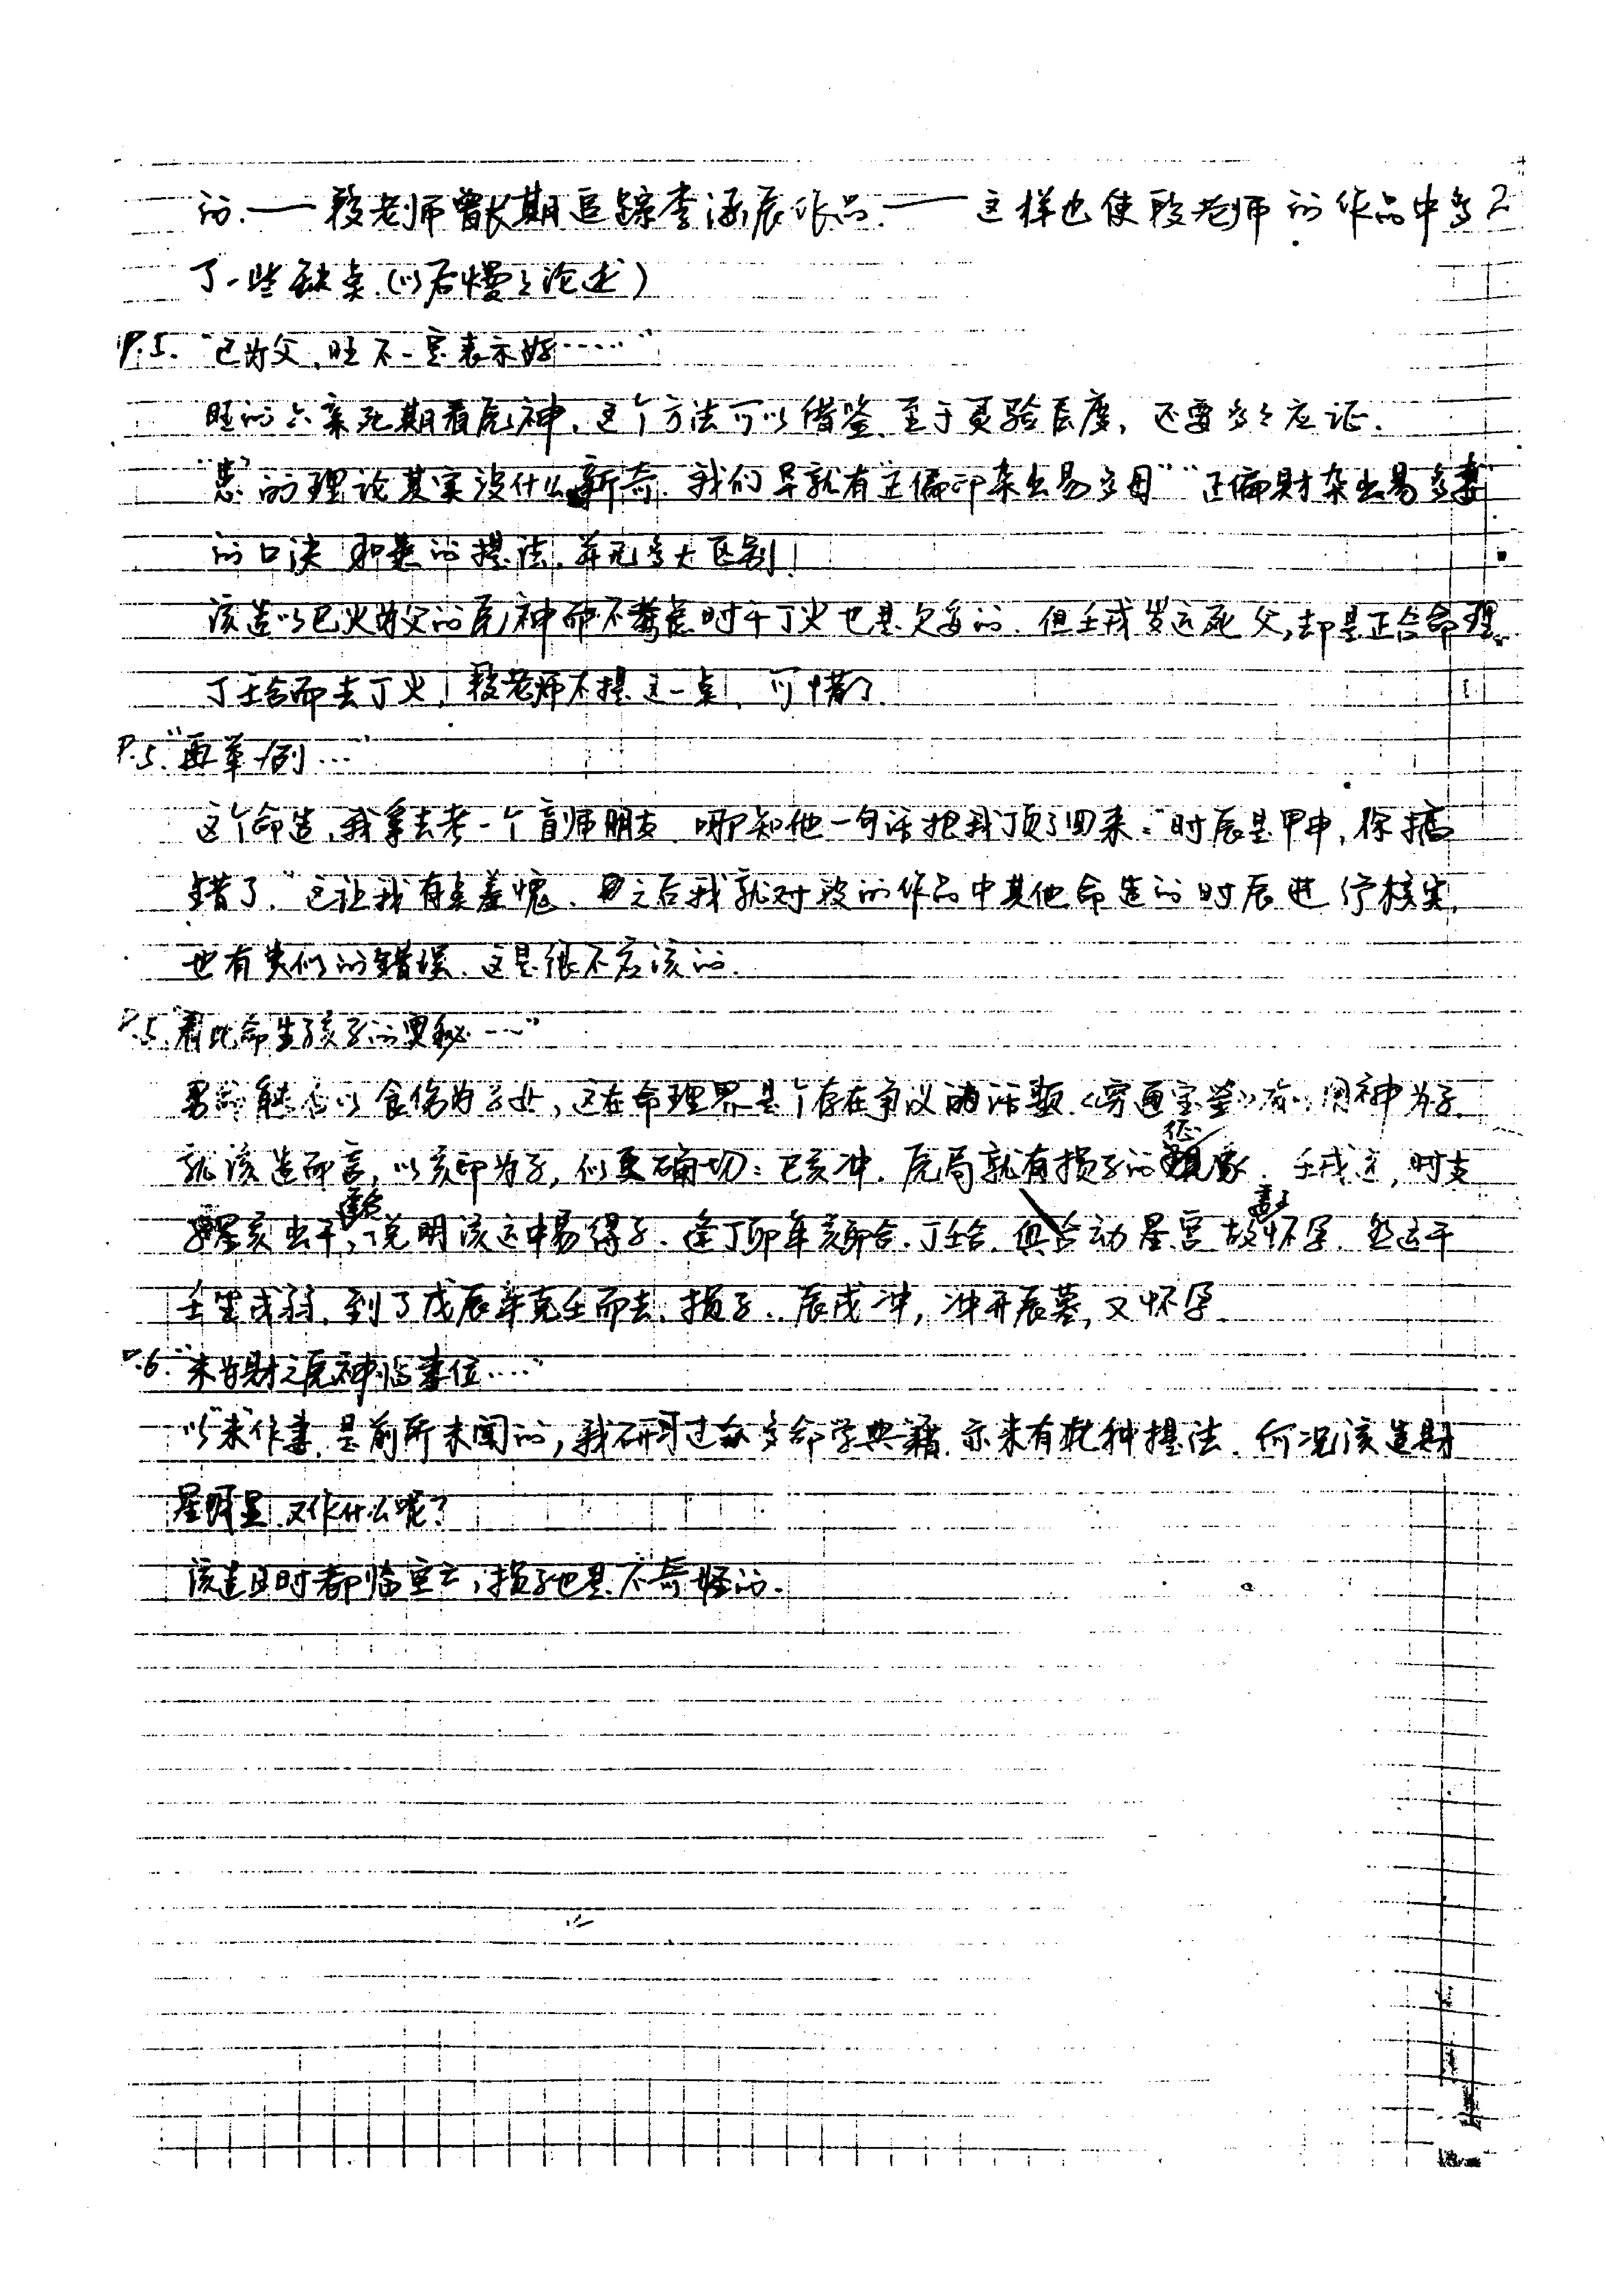 的.——段老师曾长期追踪李涵辰作品.——这样也使段老师的作品中多2
了一些缺点.(以后慢々论述)
P.5. "巳为父,旺不一定表示好……"
旺的六亲死期看原神,这个方法可以借鉴.至于灵验度,还要多々应证.
"患"的理论其实没什么新奇.我们早就有"正偏印杂出易多母""正偏财杂出易多妻"
的口诀 和患的提法,并无多大区别!
该造以巳火为父的原神而不考虑时干丁火也是欠妥的.但壬戌岁运死父,却是正合命理.
丁壬合而去丁火!段老师不提这一点,可惜了.
P.5."再举一例…"
这个命造,我拿去考一个盲师朋友.哪知他一句话把我顶了回来:"时辰是甲申,你搞
错了."这让我有点羞愧.之后我就对段的作品中其他命造的时辰进行核实,
也有类似的错误.这是很不应该的.
P.5"看此命生孩子的奥秘……"
男命能否以食伤为子女,这在命理界是个存在争议的话题.《穷通宝鉴》有以用神为子.
就该造而言,以亥印为子,似更确切:巳亥冲.原局就有损子的征象.壬戌运,时支
亥出干,说明该运中易得子.逢丁卯年亥卯合.丁壬合.俱合动星宫故妻子怀孕.然运干
壬坐戌弱,到了戊辰年克壬而去,损子.辰戌冲,冲开辰墓,又怀孕.
P.6."未为财之原神临妻位……"
以"未"作妻,是前所未闻的,我研习过众多命学典籍.亦未有此种提法.何况该造财
星明显.又作什么呢?
该造日时都临空亡,损子也是不奇怪的.